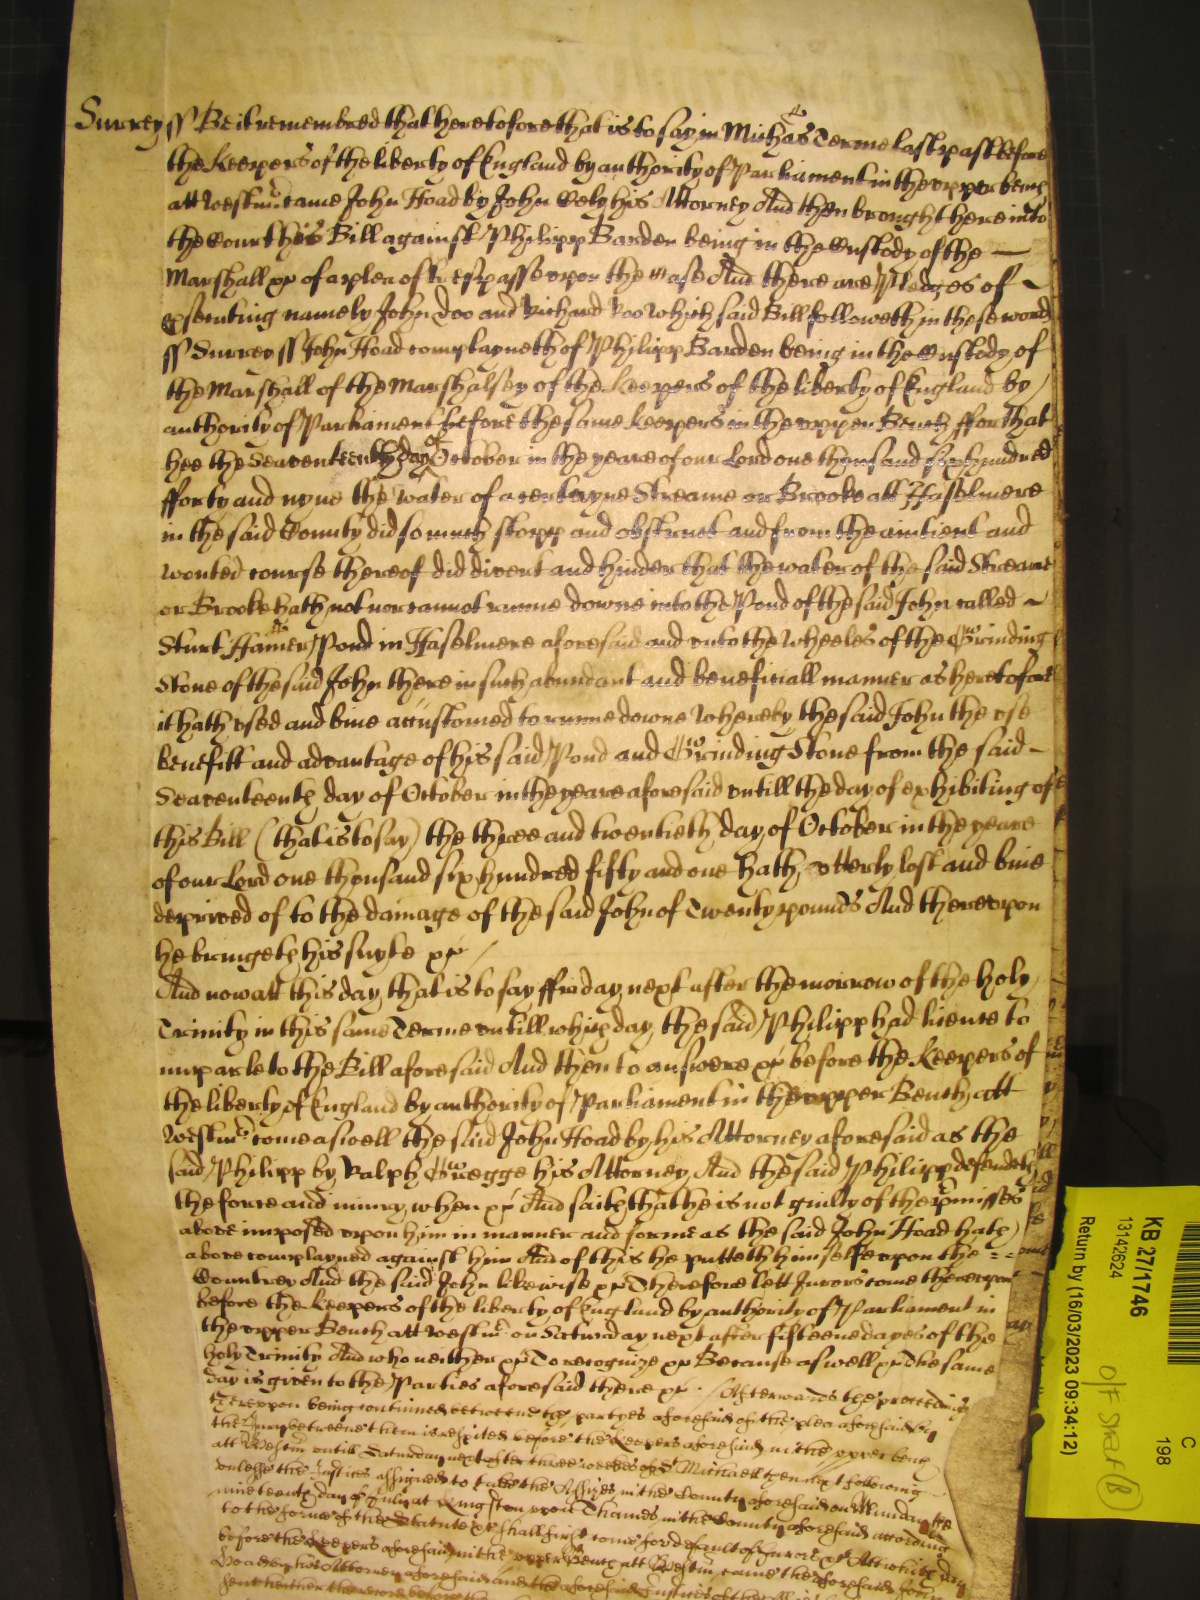 Surrey ss Be it remembred that heretofore that is to say in Michas Terme last past before
the Keepers of the liberty of England by authority of Parliament in the upper bench
att Westmr came John Hoad by John his Attorney And then brought here into
the Court his Bill against Philipp Barden being in the Custody of the
Marshall &c of a plea of trespasse upon the case And there are Pledges of
psecuting namely John Doo and Richard Roo which said Bill followeth in these words
ss Surrey ss John Hoad complayneth of Philipp Barden being in the Custody of
the Marshall of the Marshalsey of the Keepers of the liberty of England by
authority of Parliament before the same Keepers in the upper Bench ffor that
hee the Seaventeenth day of October in the yeare of our Lord one thousand six hundred
fforty and nyne the water of a certayne Streame or Brooke att Haselmere
in the said County did so much stopp and obstruct and from the antient and
wonted course thereof did divert and hinder that the water of the said Streame
or Brooke hath not nor cannot runne downe into the Pond of the said John called
Sturt Hamer Pond in Haselmere aforesaid and unto the Wheeles of the Grinding
Stone of the said John there in such abundant and beneficiall manner as heretofore
it hath used and bine accustomed to runne downe Whereby the said John the use
benefitt and advantage of his said Pond and Grinding Stone from the said
Seaventeenth day of October in the yeare aforesaid untill the day of exhibiting of
this Bill (that is to say) the three and twentieth day of October in the yeare
of our Lord one thousand six hundred fifty and one hath utterly lost and bine
deprived of to the damage of the said John of Twenty pounds And thereupon
he bringeth his suyte &c
And now att this day that is to say ffriday next after the morrow of the holy
Trinity in this same Terme untill which day the said Philipp had licence to
imparle to the Bill aforesaid And then to answere &c before the Keepers of
the liberty of England by authority of Parliament in the upper Bench att
Westmr come aswell the said John Hoad by his Attorney aforesaid as the
said Philipp by Ralph Gregge his Attorney And the said Philipp defendeth
the force and iniury when &c And saith that he is not guilty of the pmisses
above imposed upon him in manner and forme as the said John Hoad hath
above complayned against him And of this he putteth himselfe upon the
Countrey And the said John likewise &c Therefore lett Jurors come thereupon
before the Keepers of the liberty of England by authority of Parliament in
the upper Bench att Westmr on Saturday next after fifteene dayes of the
holy Trinity And who neither &c To recognize &c Because aswell &c The same
day is given to the Parties aforesaid there &c Afterwards the proceeding
thereupon being continued betweene the partyes aforesaid of the plea aforesaid by
the Jury betweene them is respited before the Keepers aforesaid in the upper bench
att Westm untill Saturday next after three weekes of St Michaell then next following
unlesse the Justices assigned to take the Assizes in the County aforesaid on Munday the
nineteenth day of July at Kingston upon Thames in the County aforesaid according
to the forme of the Statute &c shall first come for default of Jurors &c Att which day
before the Keepers aforesaid in the upper Bench att Westm came the aforesaid John
Hoad by his Attorney aforesaid and the aforesaid Justices
sent hether there before
KB 27/1746
13142624
Return by (16/03/2023 09:34:12)
C
198